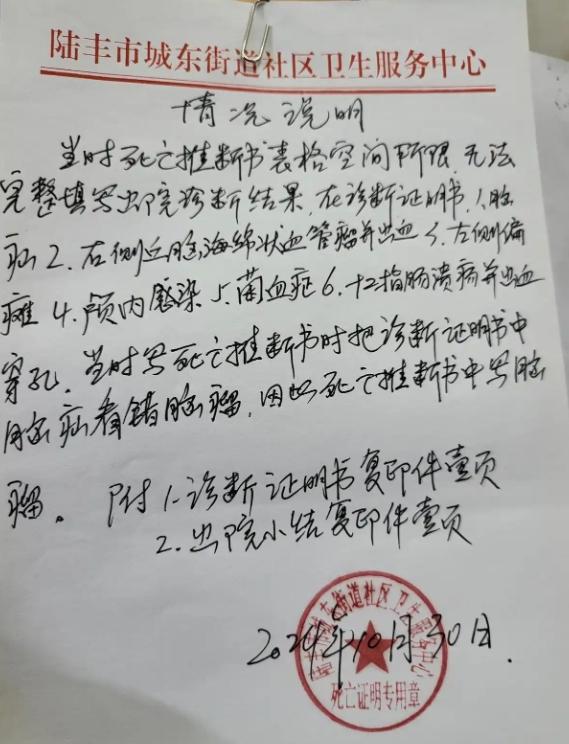 陆丰市城东街道社区卫生服务中心
情况说明
当时死亡推断书表格空间所限,无法
完整填写出院诊断结果,在诊断证明书,1.脑
疝2.右侧丘脑海绵状血管瘤并出血3.左侧偏
瘫4.颅内感染5.菌血症6.十二指肠溃疡并出血
穿孔,当时写死亡推断书时把诊断证明书中
脑疝看错脑瘤,因此死亡推断书中写脑
瘤。附1.诊断证明书复印件壹页
2.出院小结复印件壹页
2024年10月30日.
陆丰市城东街道社区卫生服务中心
死亡证明专用章